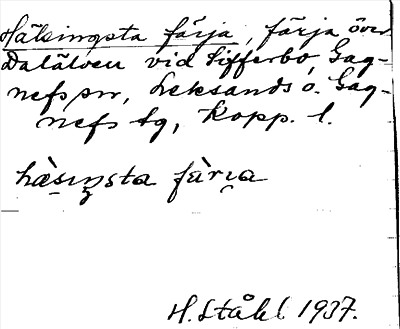 Hälsingsta färja, färja över
Dalälven vid Sifferbo, Gag-
nefs sn, Leksands o. Gag-
nefs tg, Kopp. l.
hàsiŋsta fària
H. Ståhl 1937.